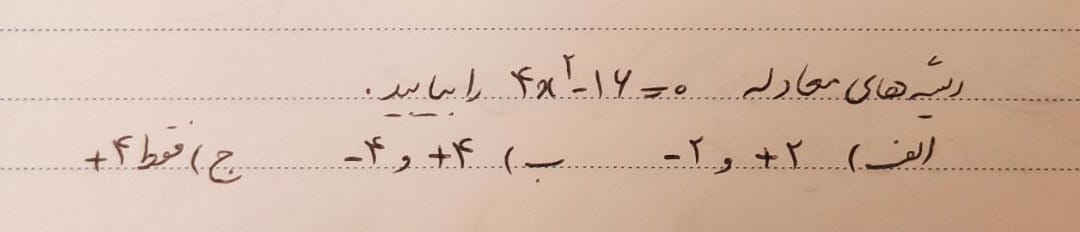 ریشه‌های معادله ۴x²-۱۶=۰ را بیابید.
الف) ۲+ و ۲- ب) ۴+ و ۴- ج) فقط ۴+